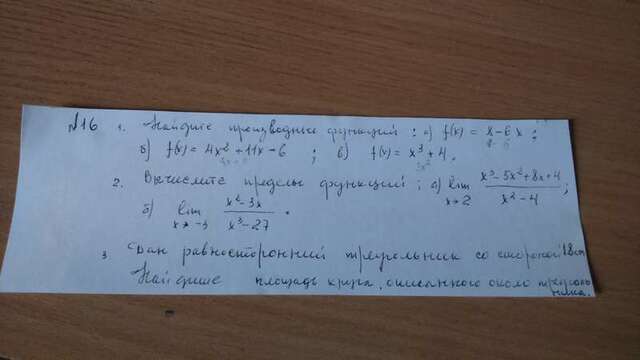 №16 1. Найдите производные функций: а) f(x) = 8-6x;
б) f(x) = 4x²+11x-6 ; в) f(x) = x³+4.
2. Вычислите пределы функций: а) lim x→2 x³-5x²+8x+4 / x²-4 ;
б) lim x→-3 x²-3x / x³-27 .
3 Дан равносторонний треугольник со стороной 18см
Найдите площадь круга, описанного около треуголь
ника.